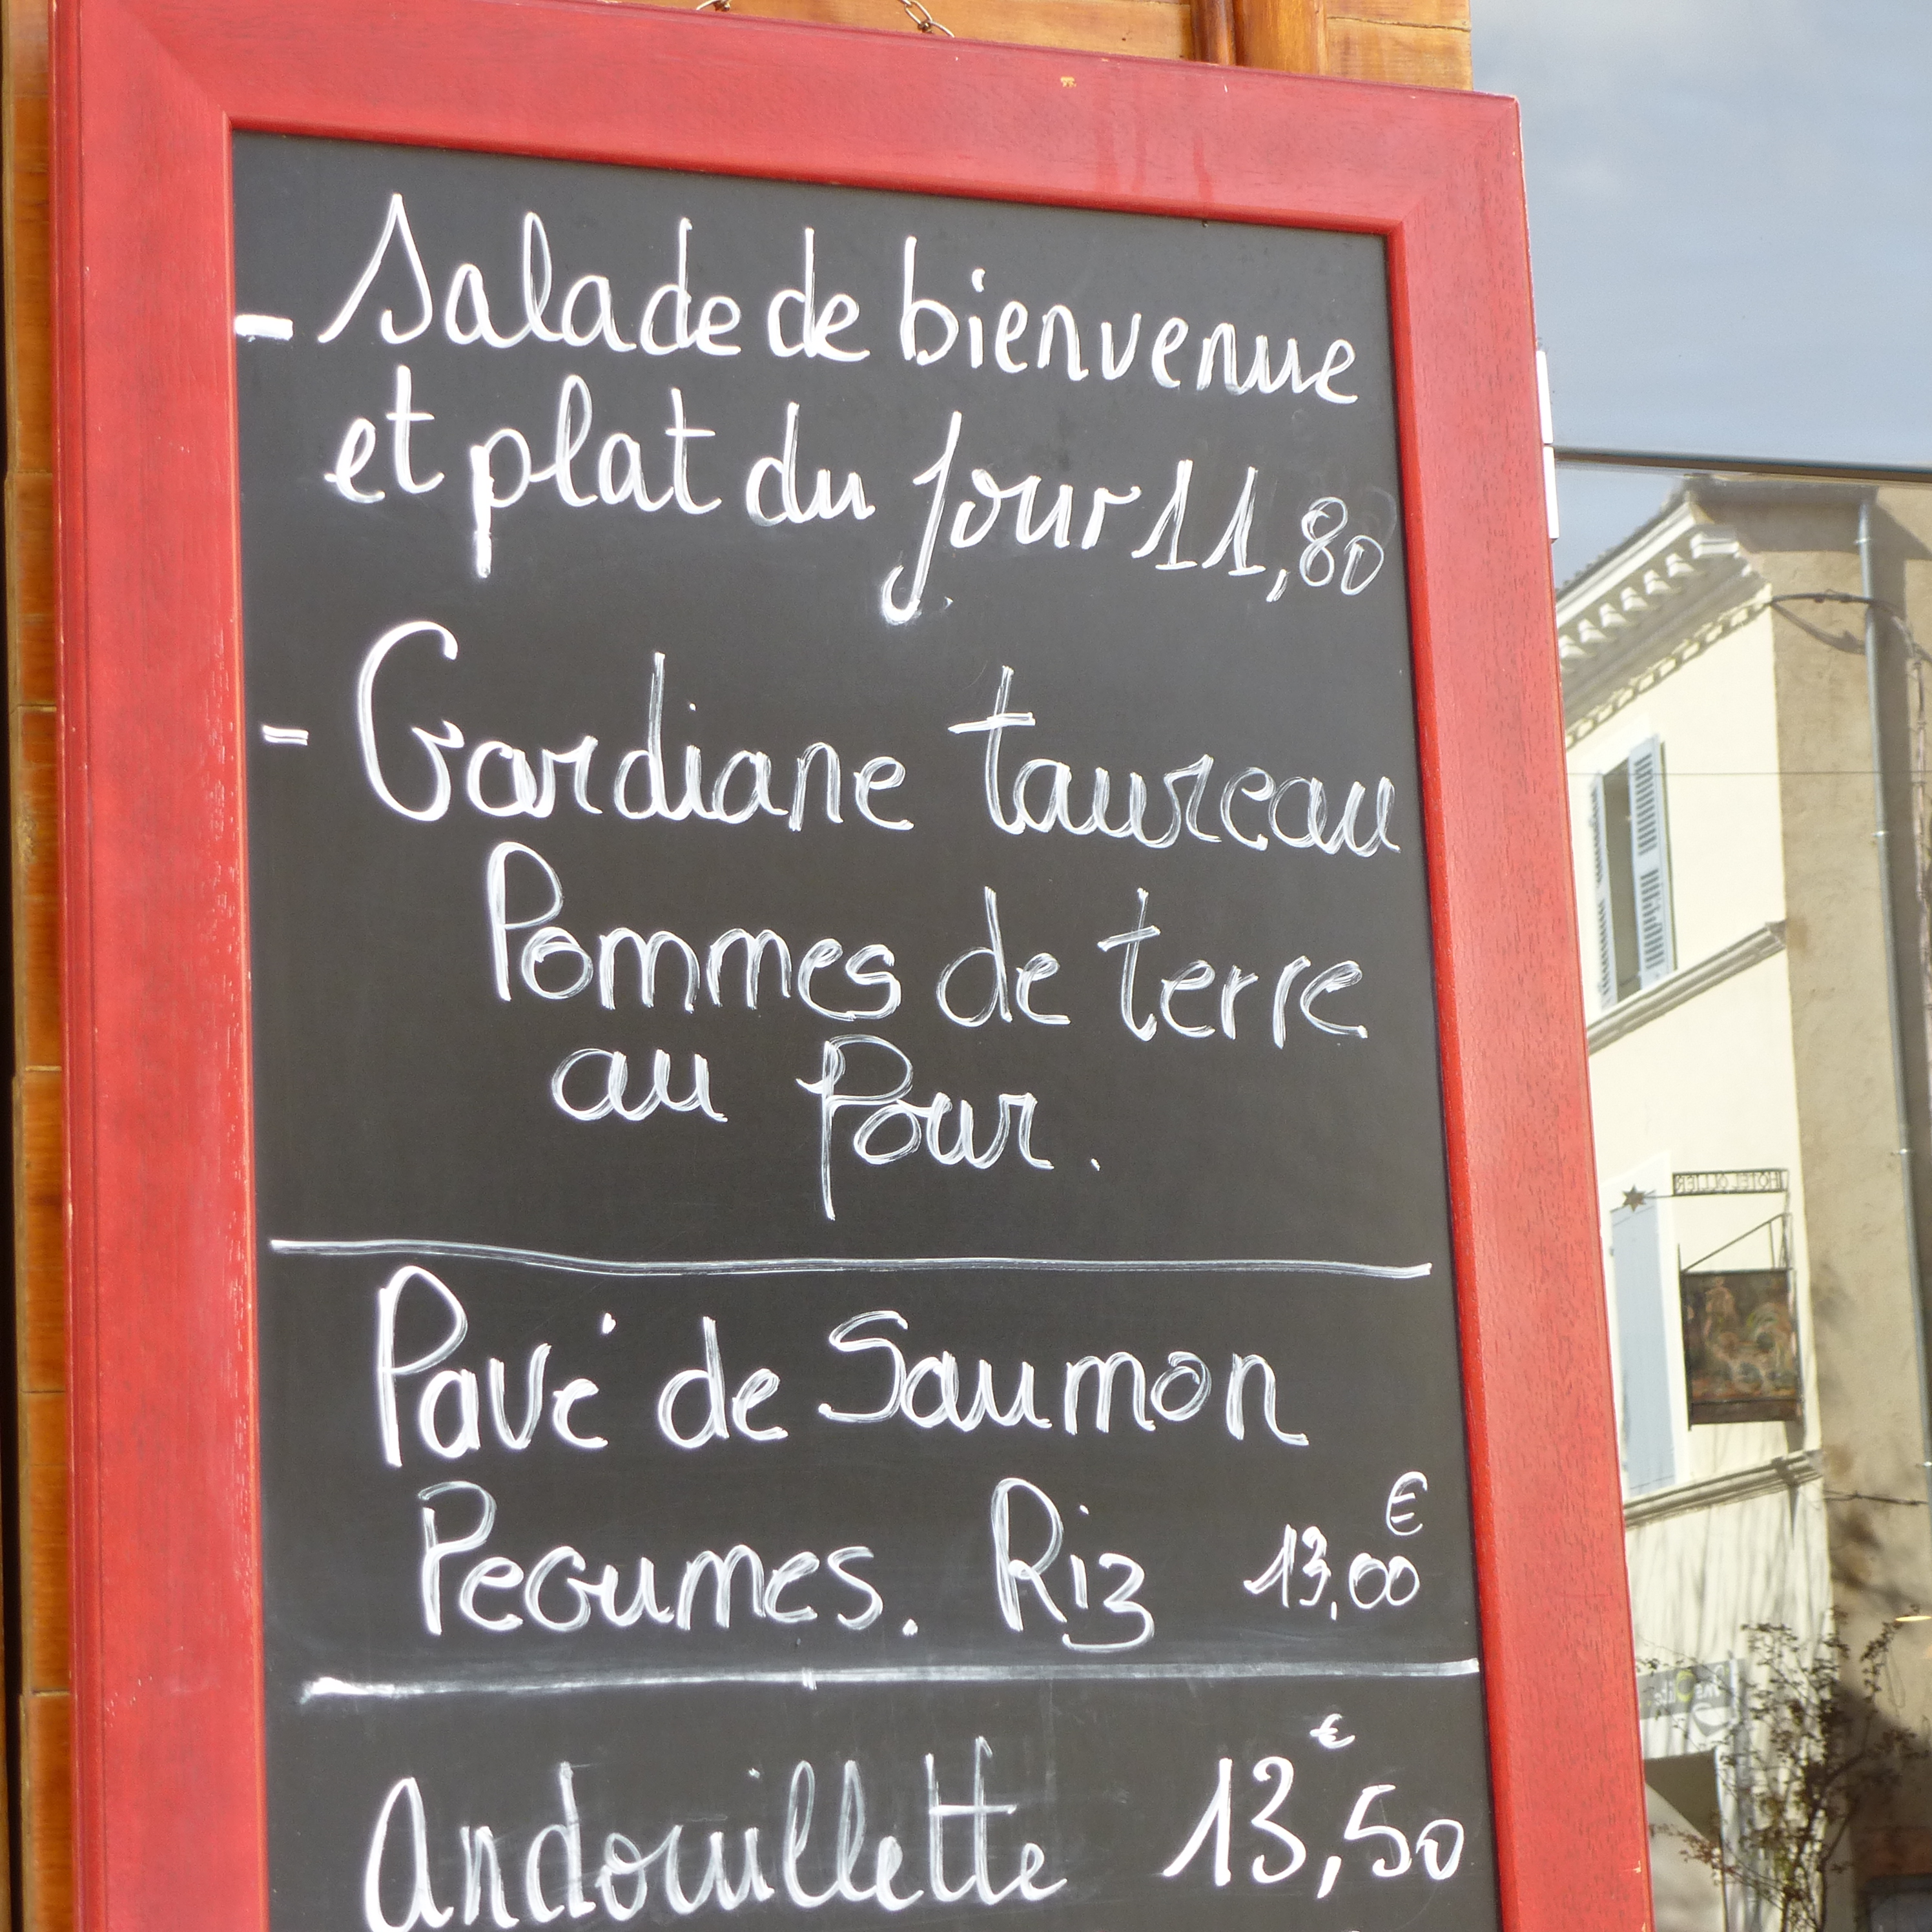 - Salade de bienvenue
et plat du jour 11,80
- Gardiane taureau
Pommes de terre
au Pour.
Pavé de Saumon
Pegumes. Riz 13,00€
Andouillette 13,50€
HOTEL OLLIER